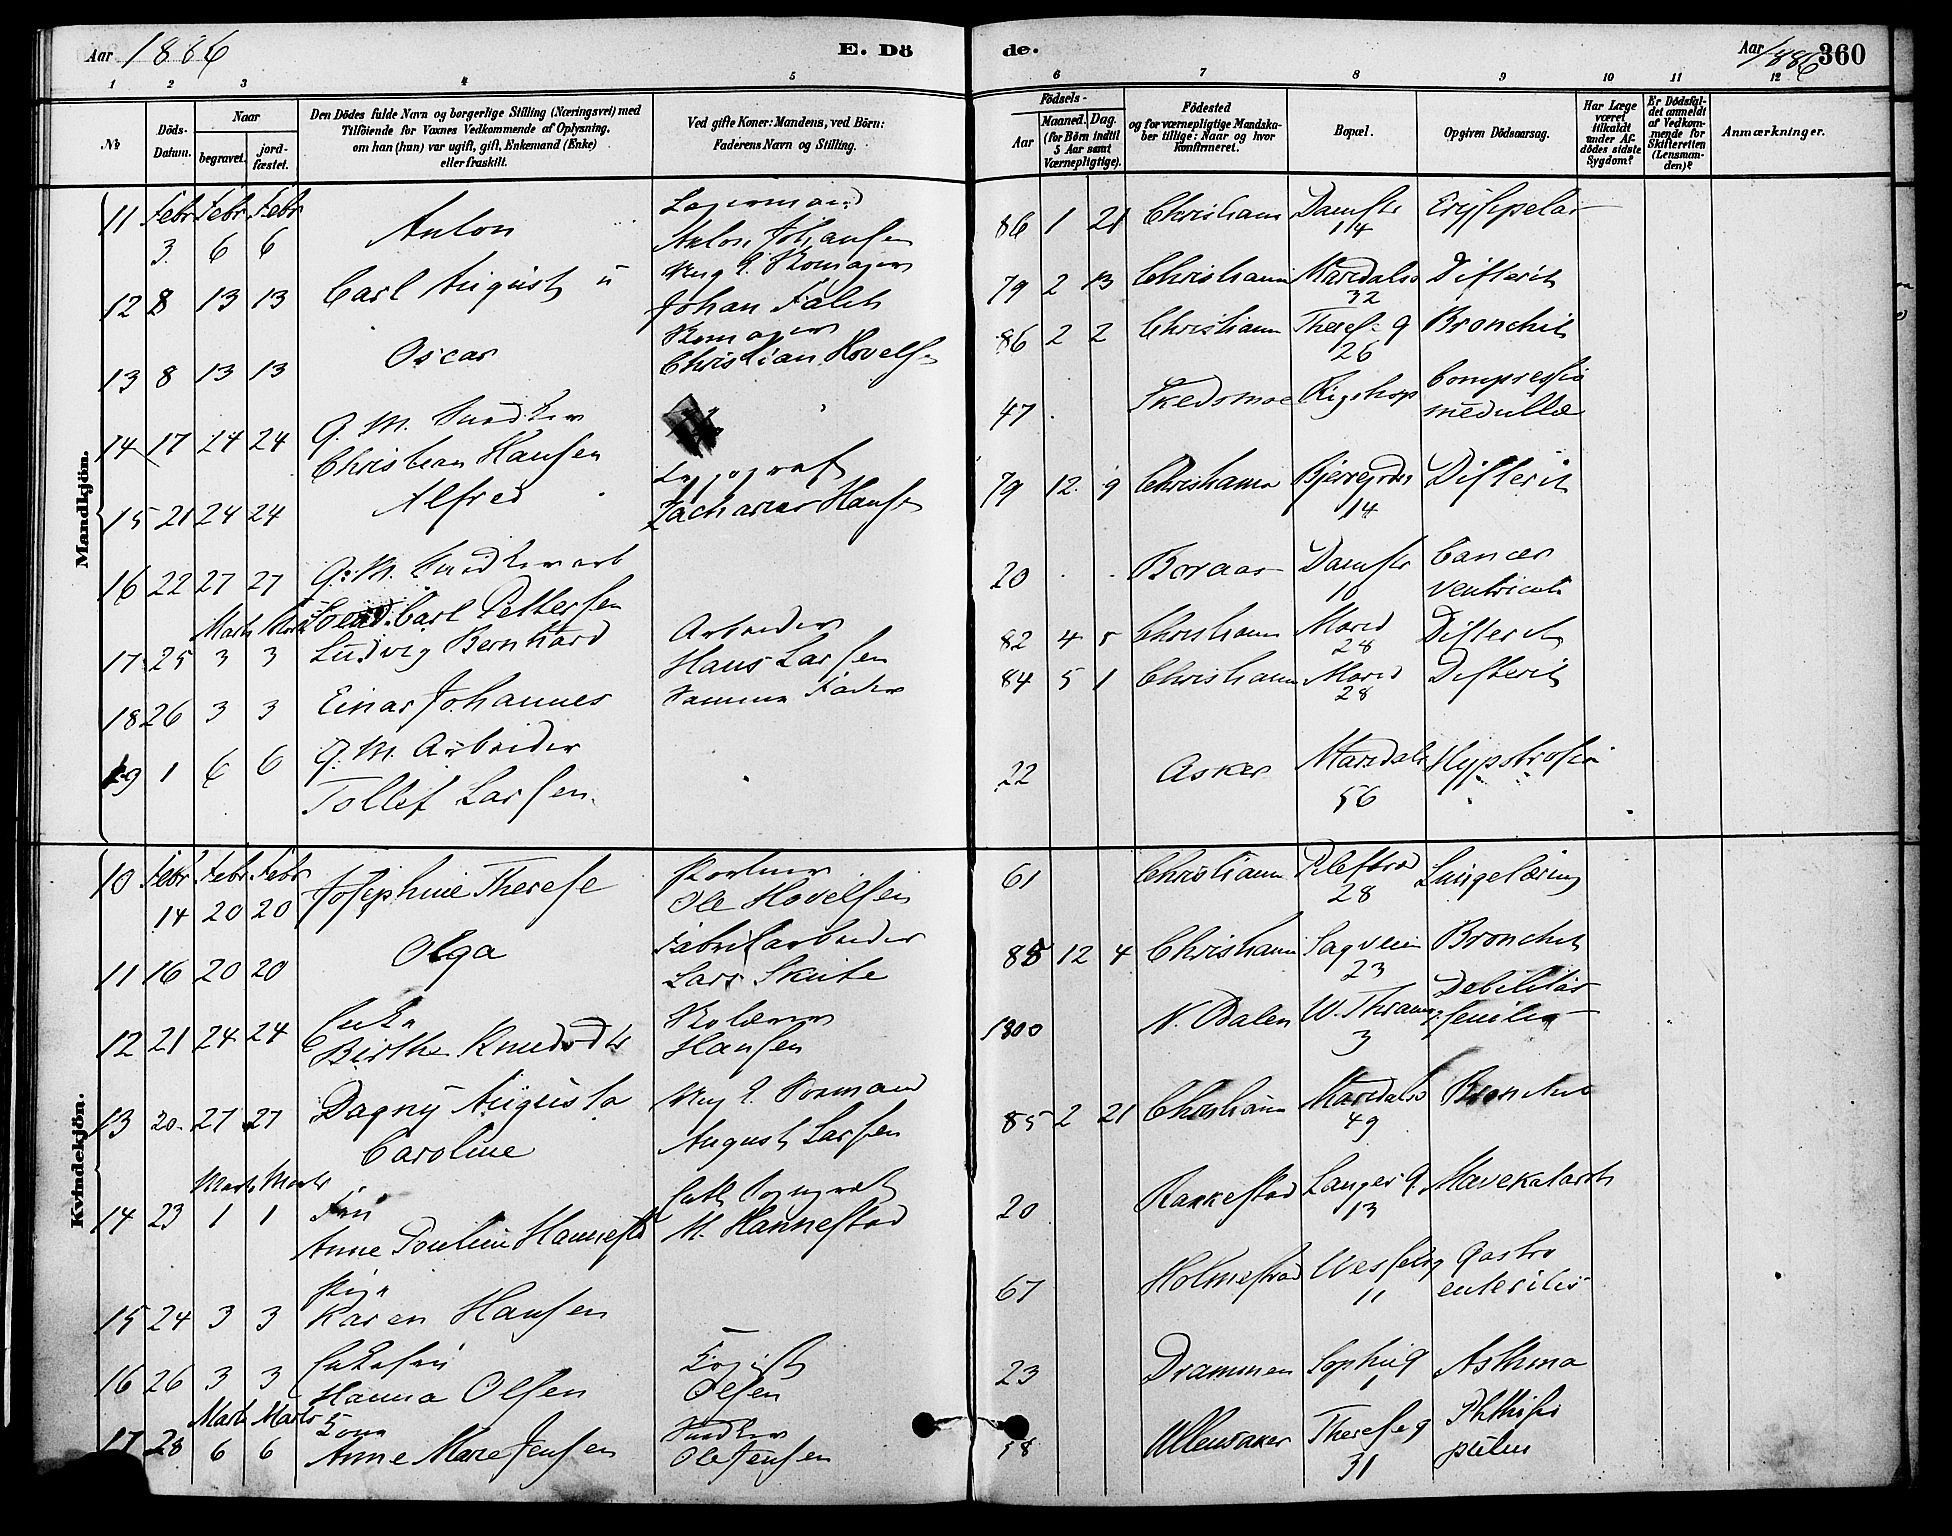 Aar 1886 E. Dö
de. Aar 1886 360
1 2 3 4 5
6 7 8 9 10 11 12
No
Döds-Datum.
Naar
begravet.
jord-fæstet.
Den Dödes fulde Navn og borgerlige Stilling (Næringsvei) med
Tilföiende for Voxnes Vedkommende af Oplysning,
om han (hun) var ugift, gift, Enkemand (Enke)
eller fraskilt.
Ved gifte Koner: Mandens, ved Börn:
Faderens Navn og Stilling.
Födsels-
Aar
Maaned. Dag.
(for Börn indtil
5 Aar samt
Værnepligtige).
Födested
og for værnepligtige Mandska-
ber tillige: Naar og hvor
Konfirmeret.
Bopæl.
Opgiven Dödsaarsag.
Har Læge
været
tilkaldt
under Af-
dödes sidste
Sygdom?
Er Dödsfal-
det anmeldt
af Vedkom-
mende for
Skifteretten
(Lensman-
den)?
Anmærkninger.
Mandkjön.
11 Febr 3. Febr 6 Febr 6 Anton Lagermand Anton Johansen 86 1 21 Christiania Damstr 14 Erysipelas
12 8 13 13 Carl August Johan Falch 79 2 13 Christiania Maridalsv 32 Difterit
13 8 13 13 Oscar Skomager Christian Hovelsen 86 2 2 Christiania Theresg 26 Bronchit
14 17 24 24 G. M. Snedker Christian Hansen 47 Skedsmoe Rigshosp Compressio medullæ
15 21 24 24 Alfred Typograf Zacharias Hansen 79 12 9 Christiania Bjerregrds 14 Difterit
16 22 27 27 G. M. Snedkerarb Carl Pettersen 20 Boraas Damstr 10 Cancer ventriculi
17 25 Marts 3 Marts 3 Ludvig Bernhard Arbeider Hans Larsen 82 4 5 Christiania Marid 28 Difterit
18 26 3 3 Einar Johannes Samme Fader 84 5 1 Christiania Marid 28 Difterit
19 1 6 6 G. M. Arbeider Tollef Larsen. 22 Asker Maridals 56 Hypstrofia
Kvindekjön.
10 Febr 14 Febr 20 Febr 20 Josephine Therese Ole Hovelsen 61 Christiania Pilestræd 28 Lungelæring
11 16 20 20 Olga Fabrikarbeider Lars Skute 85 12 4 Christiania Sagveien 23 Bronchit
12 21 24 24 Enke Birthe Knudsdtr Skolærer Hansen 1800 N. Odalen W. Thranesg 3 Debilitas senilis
13 20. 27 27 Dagny Augusta Caroline Formand August Larsen 85 2 21 Christiania Maridalsv 49 Bronchit
14 23 Marts 1 Marts 1 Fru Anne Pouline Hannestd M. Hannestad 20 Rakkestad Langes g. 13 Mavekatarrh
15 24 3 3 Pige Karen Hansen 67 Holmestrand Wesselsg 11 Gastro enteritis
16 26 3 3 Enkefru Hanna Olsen Olsen 23 Drammen Sophieg 1 Asthma
17 28 Marts 6 Marts 6 Kone Anne Marie Jensen Snedker Ole Jensen 58 Ullensaker Theresesg 31 Phthisis pulm